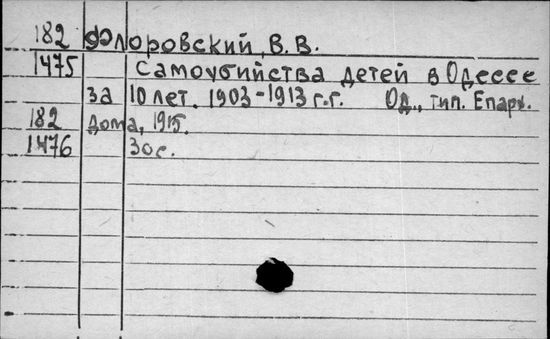 182 Флоровский, В. В.
1475 Самоубийства детей в Одессе
за 10 лет. 1903-1913 г.г. Од., тип. Епарх.
182 дома, 1915.
1476 30 с.